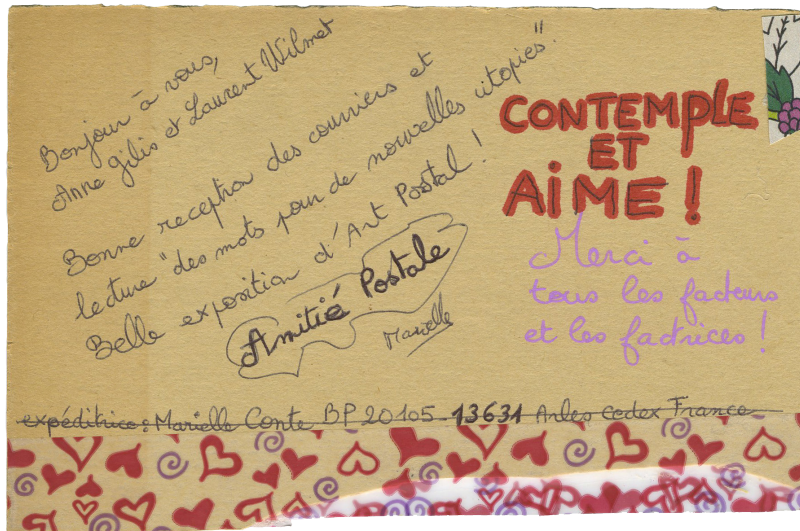 Bonjour à vous,
Anne Gilis et Laurent Wilmet
Bonne reception des courriers et
lecture "des mots pour de nouvelles utopies".
Belle exposition d'Art Postal !
Amitié Postale
Marielle
CONTEMPLE
ET
AIME !
Merci à
tous les facteurs
et les factrices !
expéditrice : Marielle Conte BP 20105 13631 Arles Cedex France